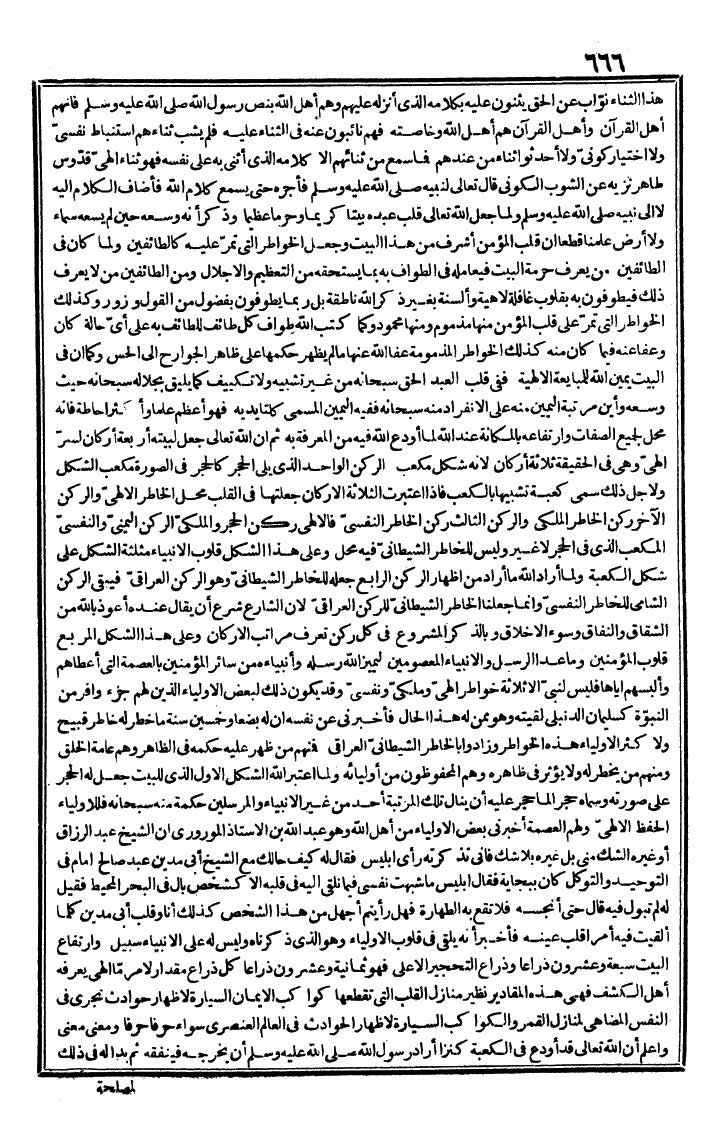 ٦٦٦
هذا الثناء نوّاب عن الحق يثنون عليه بكلامه الذى أنزله عليهم وهم أهل الله بنص رسول الله صلى الله عليه وسلم فانهم
أهل القرآن وأهل القرآن هم أهل الله وخاصته فهم نائبون عنه فى الثناء عليه فلم يشب ثناءهم استنباط نفسىّ
ولا اختيار كونىّ ولا أحدثوا ثناء من عندهم فما سمع من ثنائهم الا كلامه الذى أثنى به على نفسه فهو ثناء الهىّ قدّوس
طاهر نزيه عن الشوب الكونى قال تعالى لنبيه صلى الله عليه وسلم فأجره حتى يسمع كلام الله فأضاف الكلام اليه
لا الى نبيه صلى الله عليه وسلم ولما جعل الله تعالى قلب عبده بيتا كريما وحرما عظيما وذكر أنه وسعه حين لم يسعه سماء
ولا أرض علمنا قطعا ان قلب المؤمن أشرف من هذا البيت وجعل الخواطر التى تمرّ عليه كالطائفين ولما كان فى
الطائفين من يعرف حرمة البيت فيعامله فى الطواف به بما يستحقه من التعظيم والاجلال ومن الطائفين من لا يعرف
ذلك فيطوفون به بقلوب غافلة لاهية وألسنة بغير ذكر الله ناطقة بل ربما يطوفون بفضول من القول وزور وكذلك
الخواطر التى تمرّ على قلب المؤمن منها مذموم ومنها محمود وكما كتب الله طواف كل طائف للطائف به على أىّ حالة كان
وعفا عنه فيما كان منه كذلك الخواطر المذمومة عفا الله عنها ما لم يظهر حكمها على ظاهر الجوارح الى الحس وكما ان فى
البيت يمين الله للمبايعة الالهية ففى قلب العبد الحق سبحانه من غير تشبيه ولا تكييف كما يليق بجلاله سبحانه حيث
وسعه وأين مرتبة اليمين منه على الانفراد منه سبحانه ففيه اليمين المسمى كلتا يديه فهو أعظم علما وأكثر احاطة فانه
محل لجميع الصفات وارتفاعه بالمكانة عند الله لما أودع الله فيه من المعرفة به ثم ان الله تعالى جعل لبيته أربعة أركان لسرّ
الهىّ وهى فى الحقيقة ثلاثة أركان لانه شكل مكعب الركن الواحد الذى يلى الحجر كالحجر فى الصورة مكعب الشكل
ولاجل ذلك سمى كعبة تشبيها بالكعب فاذا اعتبرت الثلاثة الاركان جعلتها فى القلب محل الخاطر الالهىّ والركن
الآخر ركن الخاطر الملكى والركن الثالث ركن الخاطر النفسىّ فالالهى ركن الحجر والملكىّ الركن اليمنىّ والنفسىّ
المكعب الذى فى الحجر لا غير وليس للخاطر الشيطانىّ فيه محل وعلى هذا الشكل قلوب الانبياء مثلثة الشكل على
شكل الكعبة ولما أراد الله ما أراد من اظهار الركن الرابع جعله للخاطر الشيطانىّ وهو الركن العراقىّ فيبقى الركن
الشامى للخاطر النفسىّ وانما جعلنا الخاطر الشيطانىّ للركن العراقىّ لان الشارع شرع أن يقال عنده أعوذ بالله من
الشقاق والنفاق وسوء الاخلاق وبالذكر المشروع فى كل ركن تعرف مراتب الاركان وعلى هذا الشكل المربع
قلوب المؤمنين وما عدا الرسل والانبياء المعصومين ليميز الله رسله وأنبياءه من سائر المؤمنين بالعصمة التى أعطاهم
وألبسهم اياها فليس لنبىّ الا ثلاثة خواطر الهىّ وملكىّ ونفسىّ وقد يكون ذلك لبعض الاولياء الذين لهم جزء وافر من
النبوّة كسليمان الدنبلى لقيته وهو ممن له هذا الحال فأخبرنى عن نفسه ان له بضعا وخمسين سنة ما خطر له خاطر قبيح
ولاكثر الاولياء هذه الخواطر وزادوا بالخاطر الشيطانىّ العراقى فمنهم من ظهر عليه حكمه فى الظاهر وهم عامة الخلق
ومنهم من يخطر له ولا يؤثر فى ظاهره وهم المحفوظون من أوليائه ولما اعتبر الله الشكل الاول الذى للبيت جعل له الحجر
على صورته وسماه حجرا لما حجر عليه أن ينال تلك المرتبة أحد من غير الانبياء والمرسلين حكمة منه سبحانه فللاولياء
الحفظ الالهىّ ولهم العصمة أخبرنى بعض الاولياء من أهل الله وهو عبد الله بن الاستاذ المورورى ان الشيخ عبد الرزاق
أو غيره الشك منى بل غيره بلا شك فانى تذكرته رأى ابليس فقال له كيف حالك مع الشيخ أبى مدين عبد صالح امام فى
التوحيد والتوكل كان ببجاية فقال ابليس ما شبهت نفسى فيما نلقى اليه فى قلبه الا كشخص بال فى البحر المحيط فقيل
له لم تبول فيه قال حتى أنجسه فلا تقع به الطهارة فهل رأيتم أجهل من هذا الشخص كذلك أنا وقلب أبى مدين كلما
ألقيت فيه أمرا قلب عينه فأخبر أنه يلقى فى قلوب الاولياء وهو الذى ذكرناه وليس له على الانبياء سبيل وارتفاع
البيت سبعة وعشرون ذراعا وذراع التحجير الاعلى فهو ثمانية وعشرون ذراعا كل ذراع مقدار لامر ما الهى يعرفه
أهل الكشف فهى هذه المقادير نظير منازل القلب التى تقطعها كواكب الايمان السيارة لاظهار حوادث تجرى فى
النفس المضاهى لمنازل القمر والكواكب السيارة لاظهار الحوادث فى العالم العنصرى سواء حرفا حرفا ومعنى معنى
واعلم أن الله تعالى قد أودع فى الكعبة كنزا أراد رسول الله صلى الله عليه وسلم أن يخرجه فينفقه ثم بدا له فى ذلك
لمصلحة